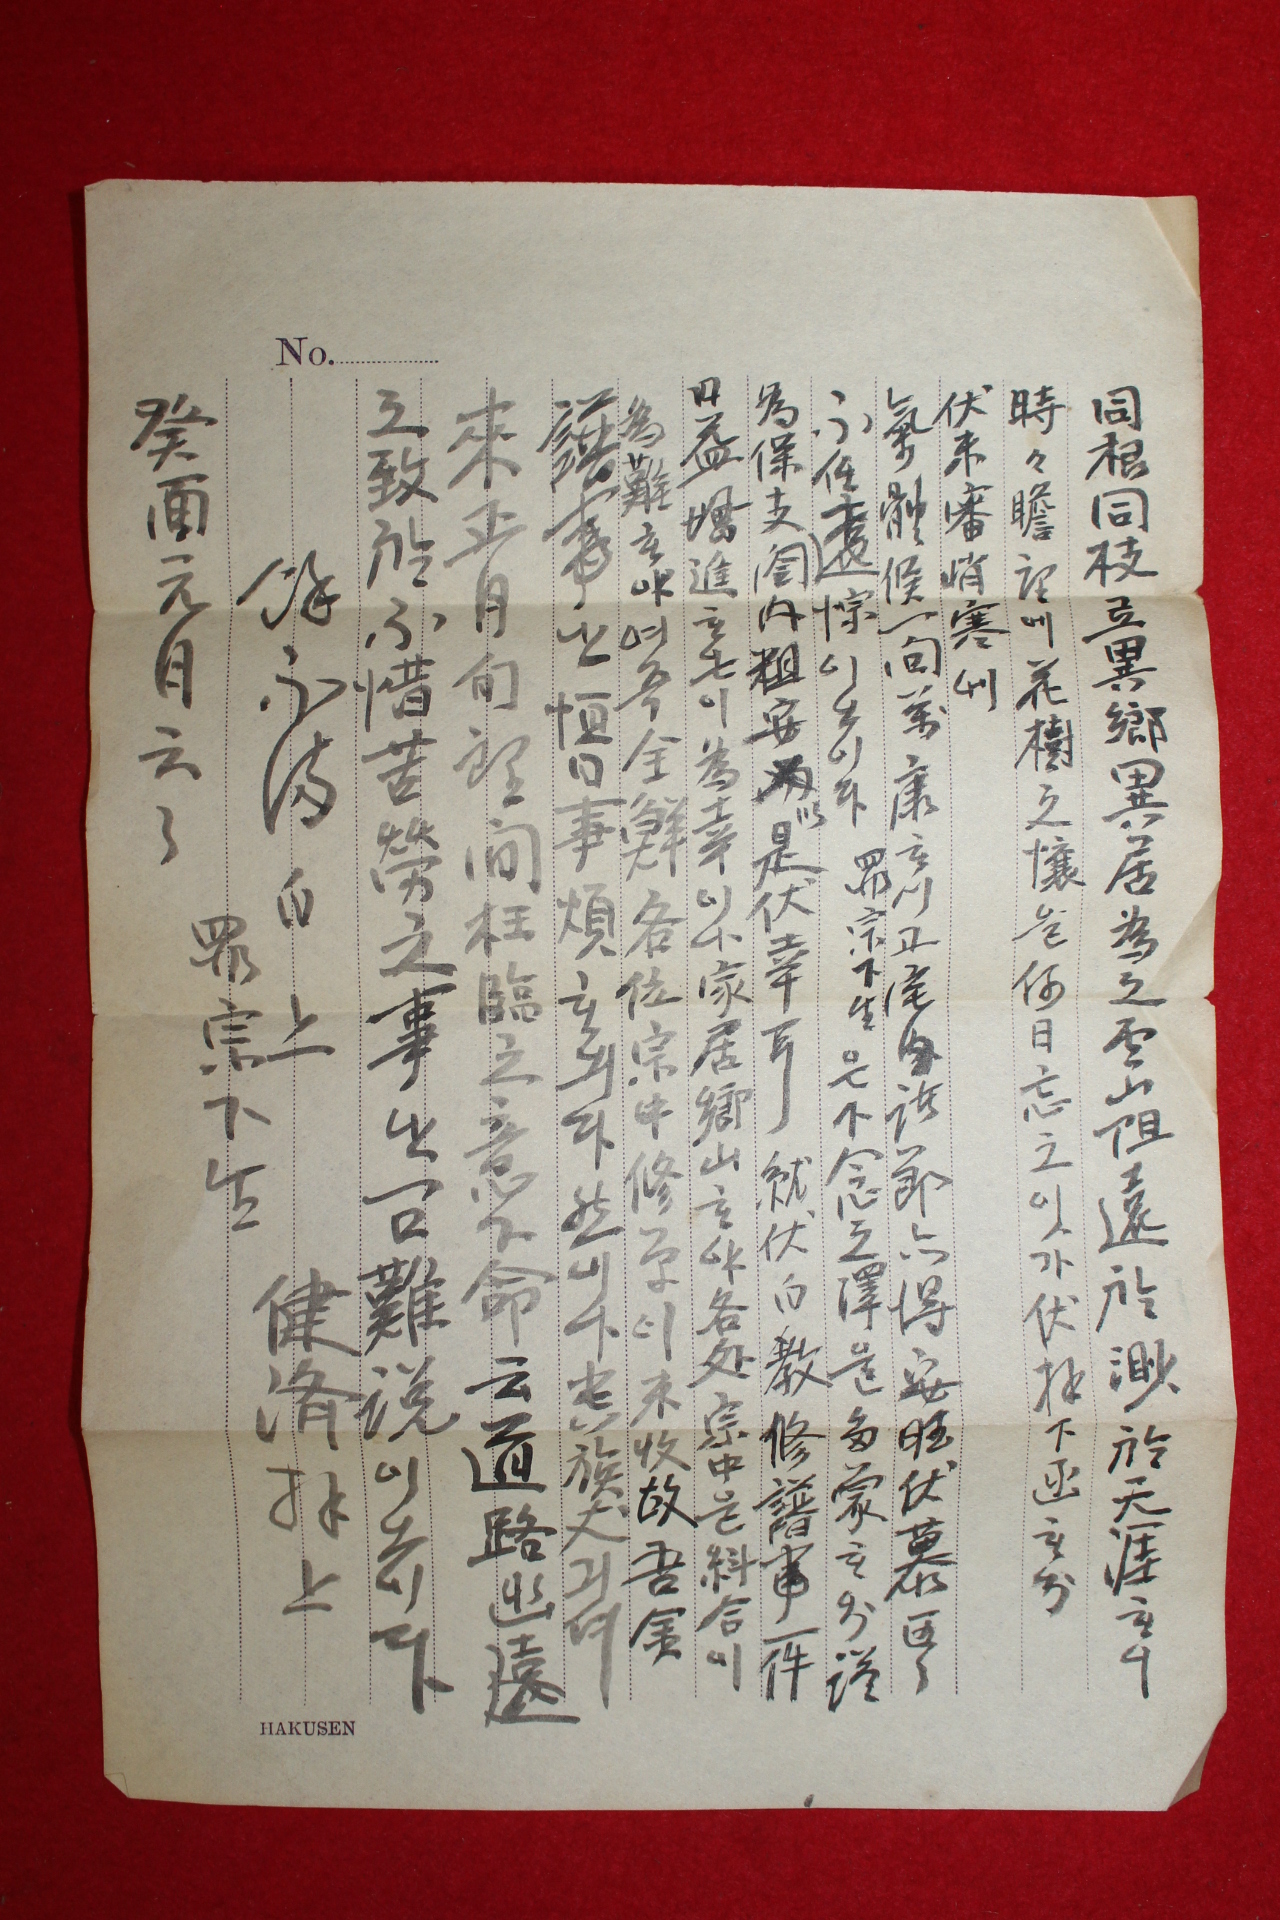 No.
同根同枝로異鄕異居為之雲山阻遠於渺於天涯하니
時々瞻望에花樹之懷는何日忘之잇가伏拜下函하와
伏未審峭寒에
氣體候一向萬康하시고宅內諸節도得安旺伏慕區々
不任遠悰이오이다 罪宗下生은下念之澤으로蒙하와
為保支閤內粗安以是伏幸耳 就伏白敎修譜事一件
日益增進하오니為幸이오나家居鄕山하야各處宗中은糾合이
為難하야여주全鮮各位宗中修單이未收故吾金
譜事난恒日事煩하외다然이나貴族大되여
來正月旬望間枉臨之意下命云道路遙遠
之致於不惜苦勞之事난言難說이오이다
餘不備白上
癸酉元月六日
罪宗下生 健濟拜上
HAKUSEN